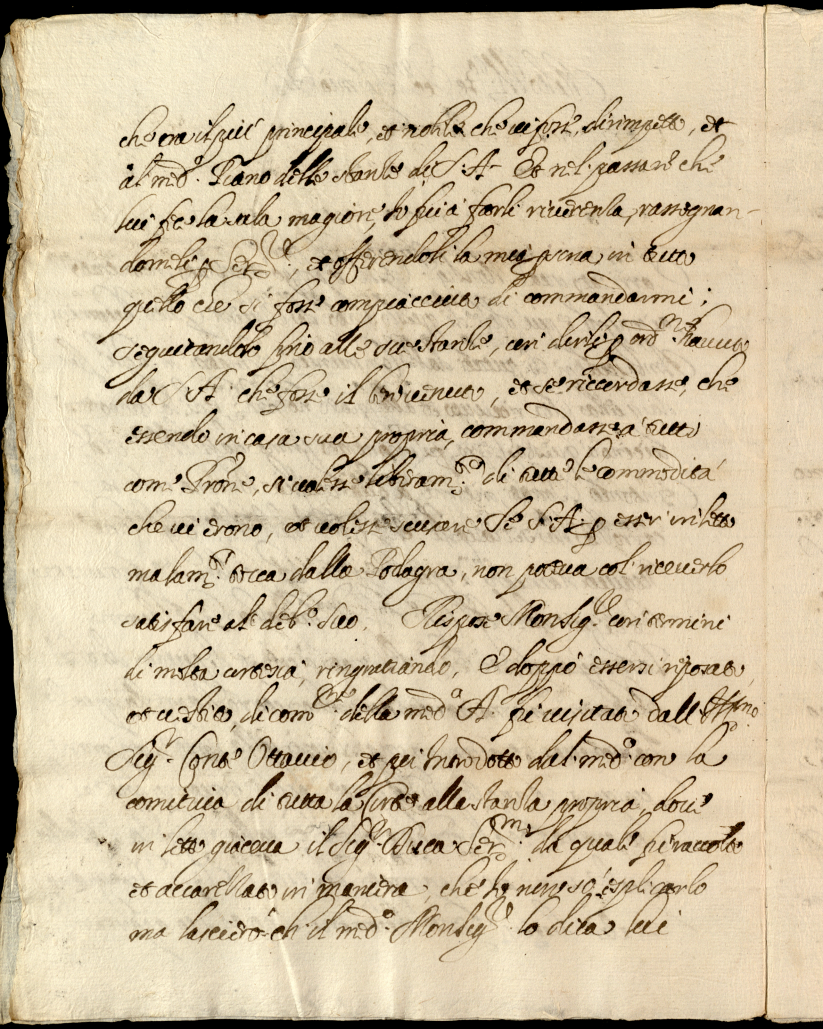 che era il più principale, et nobile che vi fosse, dirimpetto, et
al med.º Piano delle stanze di S. A. Et nel passare che
lui fece la sala magiore, Io fui à farli riverenza, rassegnan-
domeli p Ser.re, et offerendoli la mia psona in tutto
quello che si fosse compiacciuto di commandarmi;
seguitandolo fino alle sue stanze, con dirli p ord.ne havuto
da S. A. che fosse il benvenuto, et se riccordasse, che
essendo in casa sua propria, commandasse à tutti
come Prone, si valesse liberam.te di tutte le commodità
che vi erono, et volesse scusare Se S. A. p esser in letto
malam.te tocca dalla Podagra, non poteva col riceverlo
satisfare al deb.º suo. Rispose Monsig.re con termini
di molta cortesia, ringratiando, E doppò essersi riposato,
et vestito, di com.ne della med.ª A. fù visitato dall' Ill.mo
Sig.r Conte Ottavio, et poi introdotto dal med.º con la
comitiva di tutta la Corte alla stanza propria, dove
in letto giaceva il Sig.r Duca Ser.mo da quale fù raccolto
et accarezzato in maniera, che Io non sò esplicarlo
ma lascierò ch' il med.º Monsig.re lo dica lui